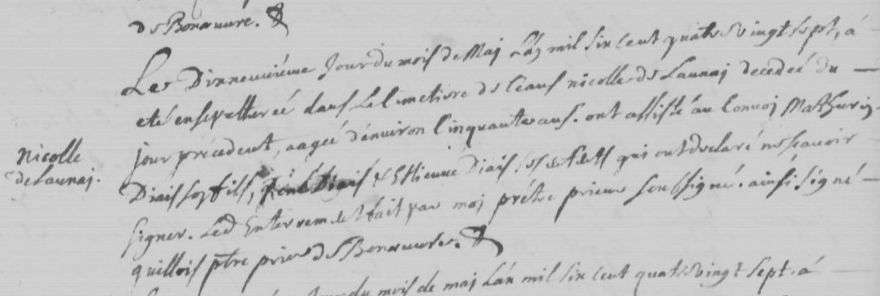 de Bonneuvre.
Le Dixneuvieme Jour du mois de Maj Lan mil six cent quatre vingt sept, a
eté ensepulturée dans le Cimetiere de ceans nicolle de Launaj decedeé du
jour precedent, aageé d'environ cinquante ans. ont assisté au Convoj Mathurin
nicolle
de Launaj.
Diais son fils, René Diais & Estienne Diais qui ont declaré ne scavoir
signer. Led Enterrement fait par moj prétre prieur soussigné. ainsi signé
quillois ptre prieur de Bonneuvre.
jour du mois de maj L'an mil six cent quatre vingt sept. á